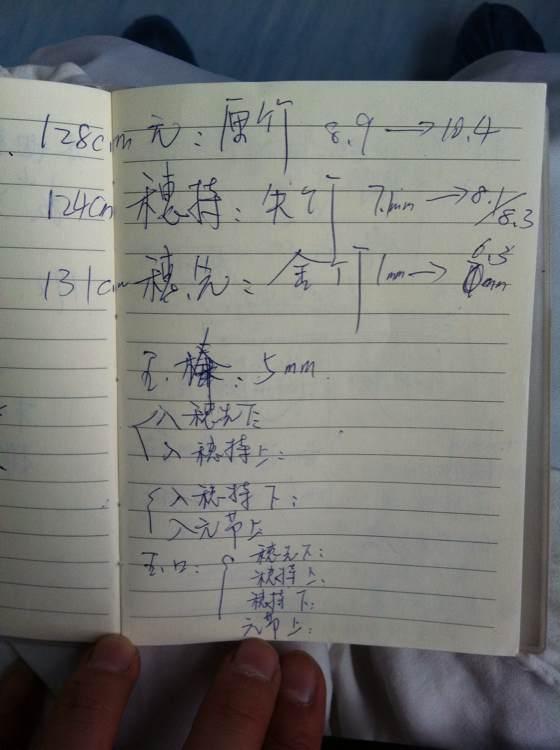 128cm 元：厚竹 8.9→10.4
124cm 穗持：矢竹 7.1mm→8.1/8.3
131cm 穗先： 竹 1mm→6.3 mm
5mm
入穗先下：
入穗持上：
入穗持下：
入元节上
口：
穗先下：
穗持上：
穗持下：
元节上：